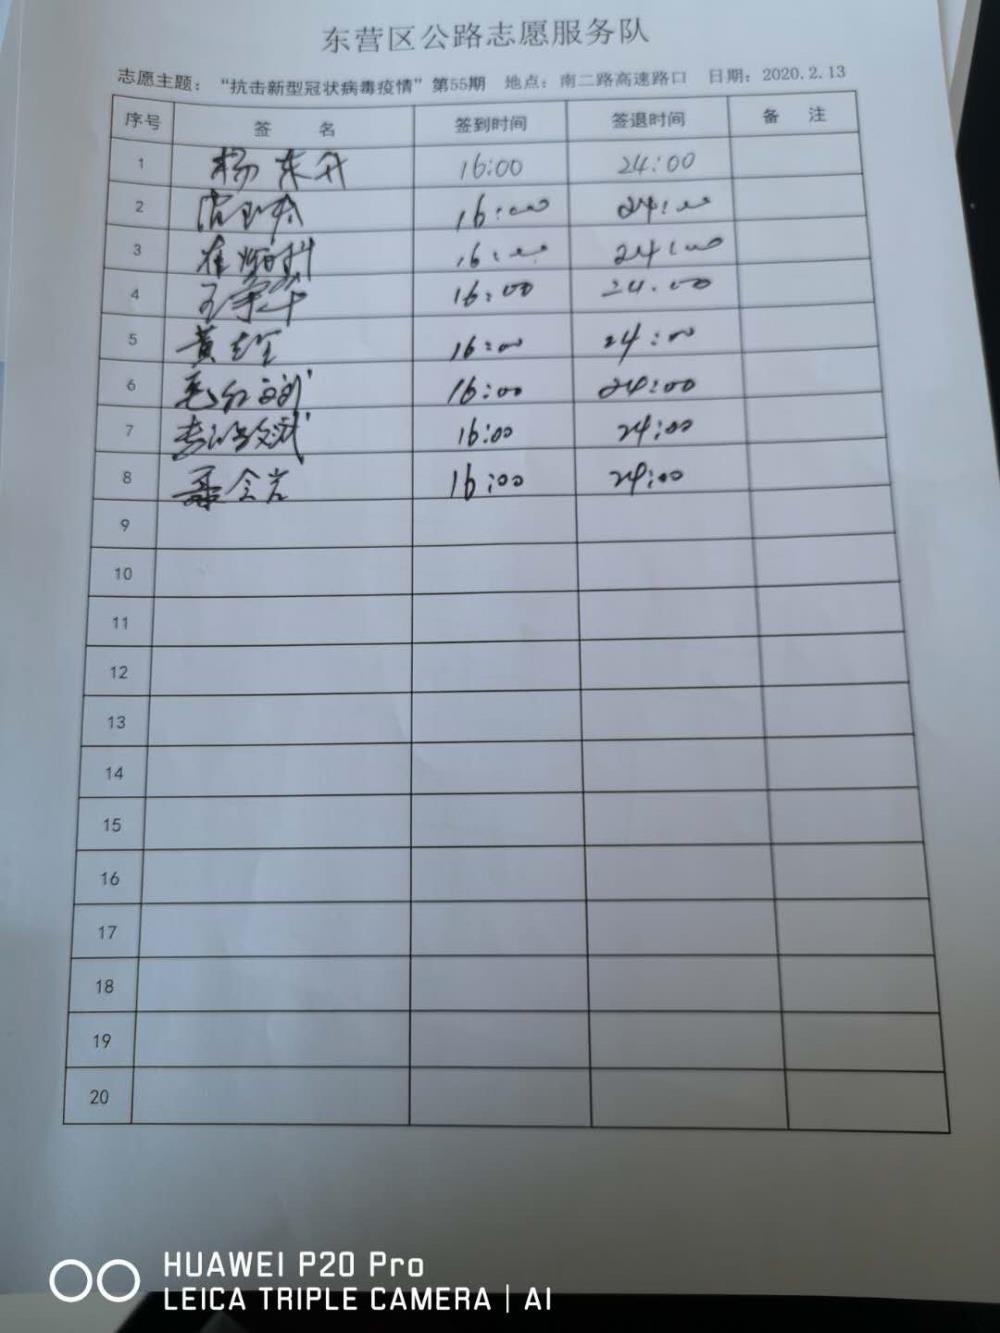 东营区公路志愿服务队
志愿主题：“抗击新型冠状病毒疫情”第55期 地点：南二路高速路口 日期：2020.2.13
序号 签 名 签到时间 签退时间 备 注
1 杨东升 16:00 24:00
2 16:00 24:00
3 崔 16:00 24:00
4 王 16:00 24:00
5 黄 16:00 24:00
6 16:00 24:00
7 16:00 24:00
8 聂会岩 16:00 24:00
9
10
11
12
13
14
15
16
17
18
19
20
HUAWEI P20 Pro
LEICA TRIPLE CAMERA | AI